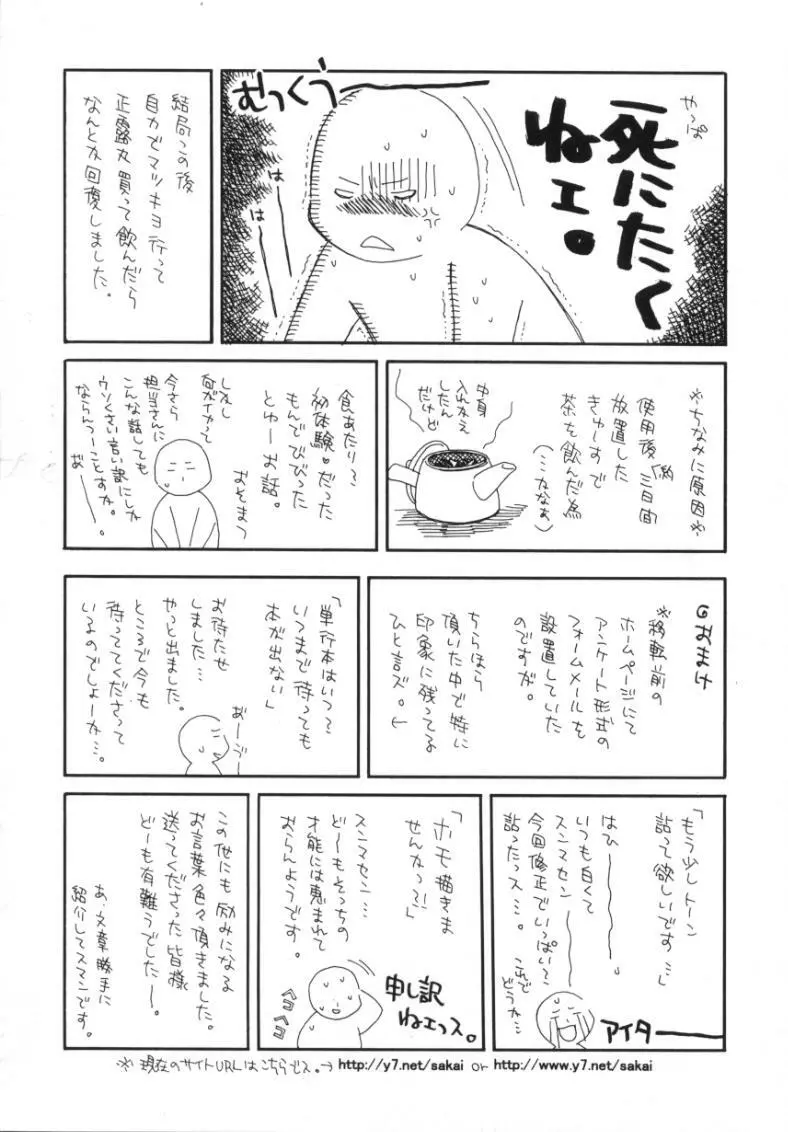 やっぱ
死にたく
ねェ。
むっくぅ
はー
はー
結局この後
自力でマツキヨ行って
正露丸買って飲んだら
なんとか回復しました。
※ちなみに原因※
使用後(約)三日間
放置した
きゅーすで
茶を飲んだ為
(ここなあ)
中身
入れかえ
したん
だけど
食あたり〜
初体験♥だった
もんでびびった
とゆーお話。
おそまつ
しかし
何がイカって
今さら
担当さんに
こんな話しても
ウソくさい言い訳にしか
ならんつーことすか。
おーー。
◎おまけ
※移転前の
ホームページにて
アンケート形式の
フォームメールを
設置していた
のですが。
ちらほら
頂いた中で特に
印象に残ってる
ひと言ズ。↓
「単行本はいつ?
いつまで待っても
本が出ない」
お待たせ
しました…
やっと出ました。
ところで今も
待っててくださって
いるのでしょーか…。
おーぅ
「もう少しトーン
貼って欲しいです…」
はひーー。
いつも白くて
スンマセンーー
今回修正でいっぱい〜
貼ったっス…。
これで
どうか…
アイターーー
「ホモ描きま
せんかっ?!」
スンマセン…
どーもそっちの
才能には恵まれて
おらんようです。
申し訳
ねェっス。
ペコ
ペコ
この他にも励みになる
お言葉色々頂きました。
送ってくださった皆様
どーも有難うでしたー。
あ、文章勝手に
紹介してスマンです。
※現在のサイトURLはこちらでス。→ http://y7.net/sakai or http://www.y7.net/sakai